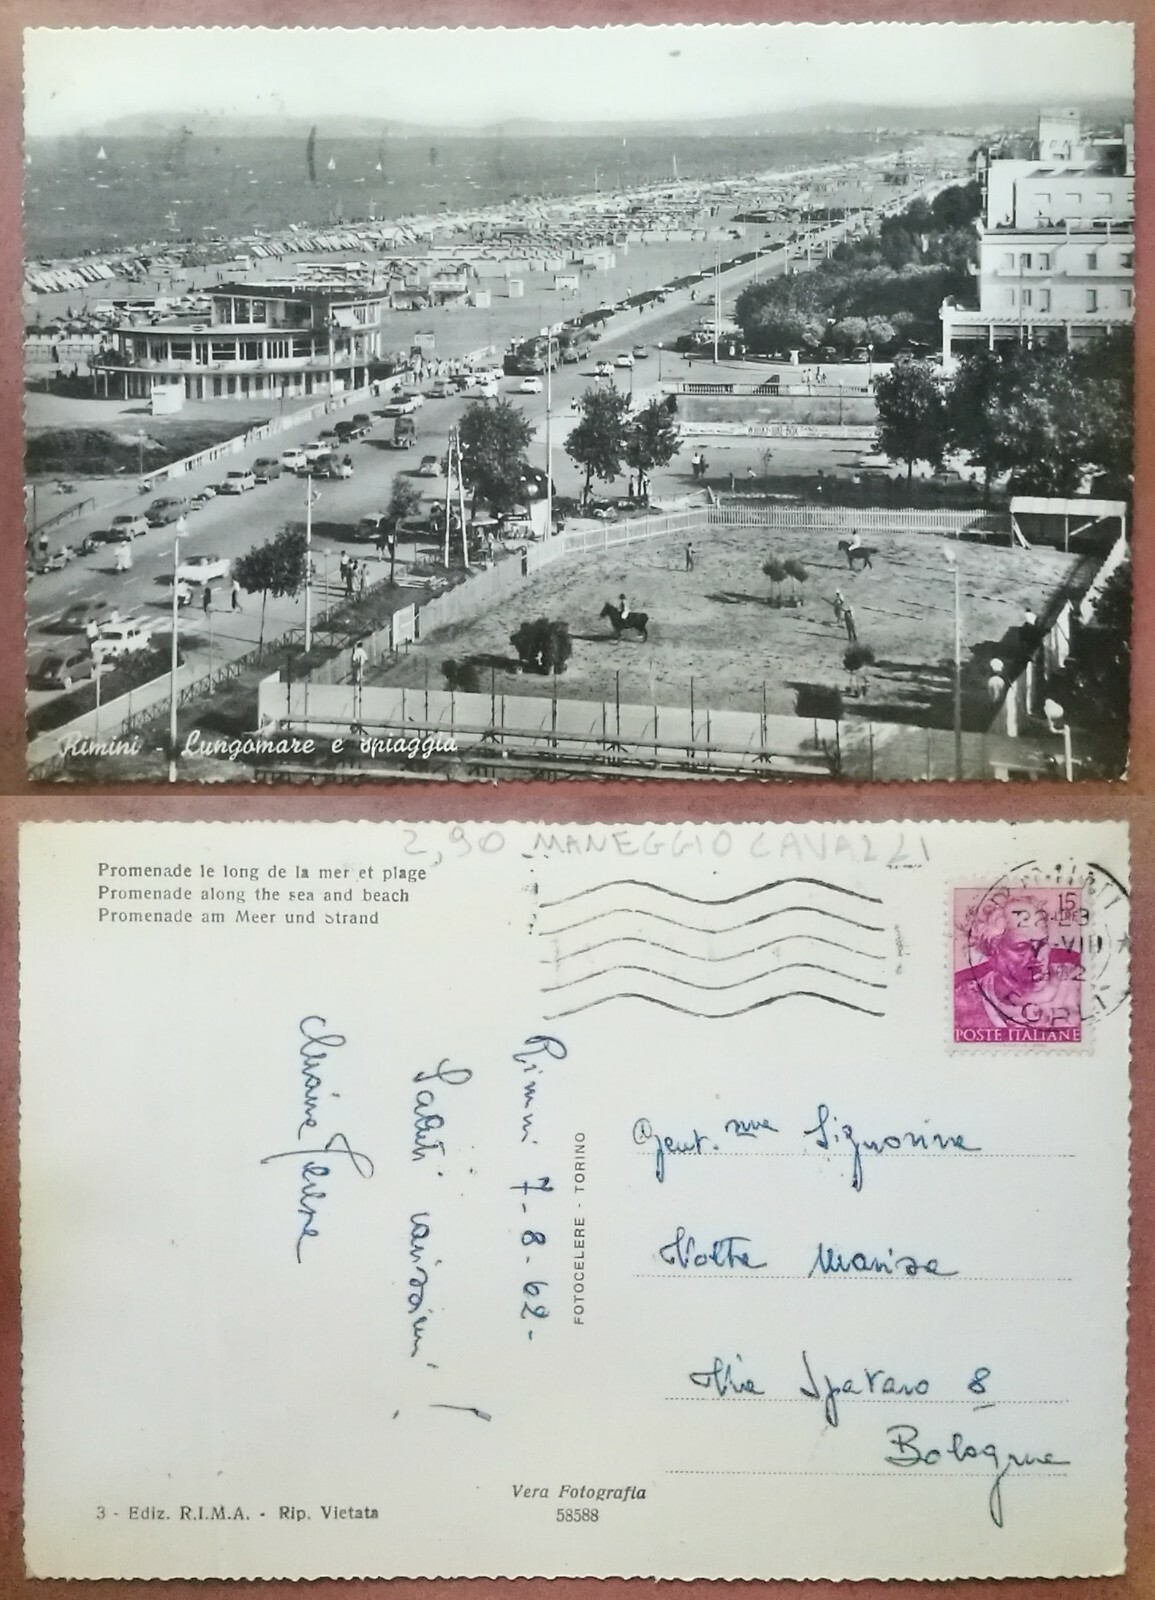 Rimini - Lungomare e spiaggia
2,90 MANEGGIO CAVALLI
Promenade le long de la mer et plage
Promenade along the sea and beach
Promenade am Meer und Strand
15
LIRE
22-23
7-VIII
FORLI
POSTE ITALIANE
Rimini 7-8-62-
Saluti carissimi!
FOTOCELERE - TORINO
Gent.ma Signorina
Volta Marisa
Via Spataro 8
Bologna
Vera Fotografia
58588
3 - Ediz. R.I.M.A. - Rip. Vietata